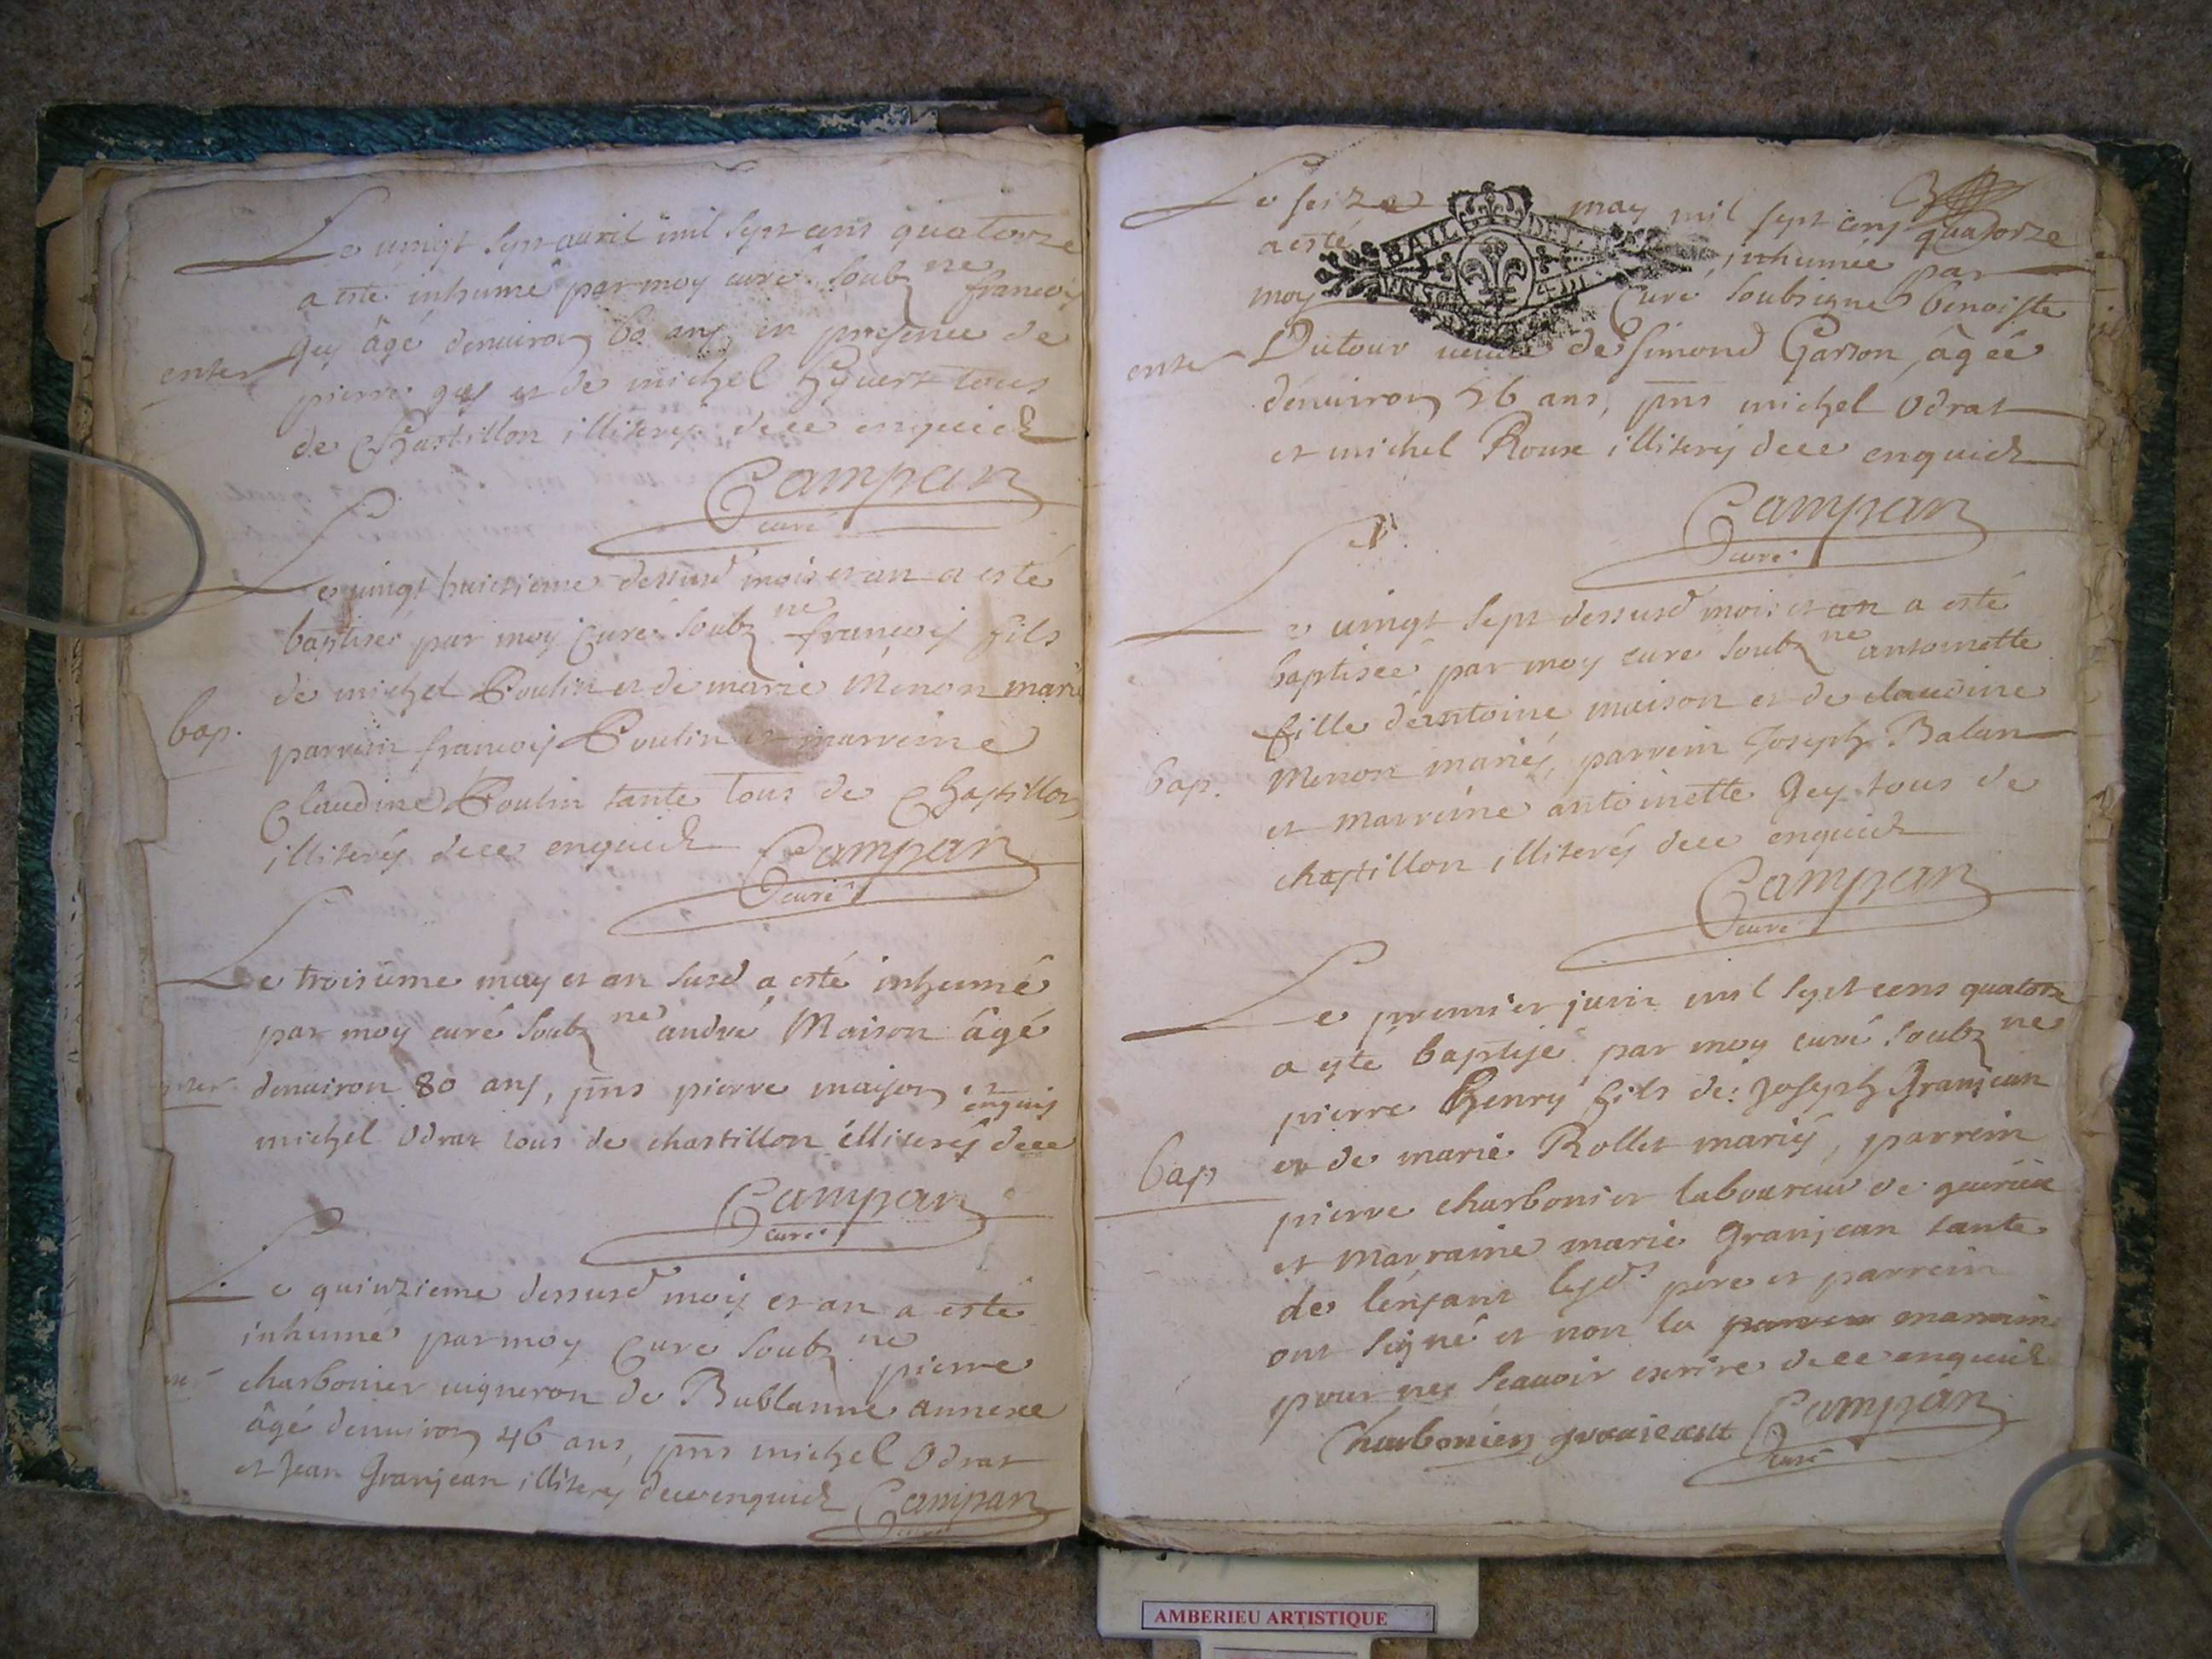 Le vingt sept avril mil sept cens quatorze
a esté inhumé par moy curé soubz.né francois
gey âgé denviron 60 ans, en presence de
enter
pierre gey et de michel
tous
de Chastillon illiterés dece enquicz
Campan
curé
Le vingt huictieme dessusd mois et an a esté
baptisé par moy Curé soubz.né francois fils
de michel Poulin et de marie Menon marié
bap.
parrein francois Poulin et marreine
Claudine Poulin tante tous de Chastillon
illiterés dece enquicz Campan
curé
Le troisieme may et an susd a esté inhumé
par moy curé soubz.né andré Maison âgé
denviron 80 ans, pns pierre maison et
enquis
michel Odrat tous de chastillon illiterés dece
Campan
curé
Le quinzieme dessusd mois et an a esté
inhumé par moy Curé soubz.né pierre
charbonier vigneron de Bublanne annexe
âgé denviron 46 ans, pns michel Odrat
et Jean Granjean illiterés dece enquicz Campan
Le seize may mil sept cens quatorze
a esté inhumée par
moy Curé soubsigné benoiste
ente
Dutour veuve de Simond Garson, âgée
denviron 56 ans, pns michel Odrat
et michel Roux illiterés dece enquicz
Campan
curé
Le vingt sept dessusd mois et an a esté
baptisée par moy curé soubz.né antoinette
fille dantoine maison et de claudine
bap.
Menon mariés, parrein Joseph Balan
et marreine antoinette Gey tous de
chastillon illiterés dece enquicz
Campan
curé
Le premier juin mil sept cens quatorze
a esté baptisé par moy curé soubz.né
pierre Henry fils de Joseph Granjean
bap
et de marie Rollet mariés, parrein
pierre charbonier laboureur de
et Marraine marie Granjean tante
de lenfant lesd. pere et parrein
ont signé et non la parrein marraine
pour ney scavoir escrire dece enquicz
Charbonier granjean Campan
curé
AMBERIEU ARTISTIQUE